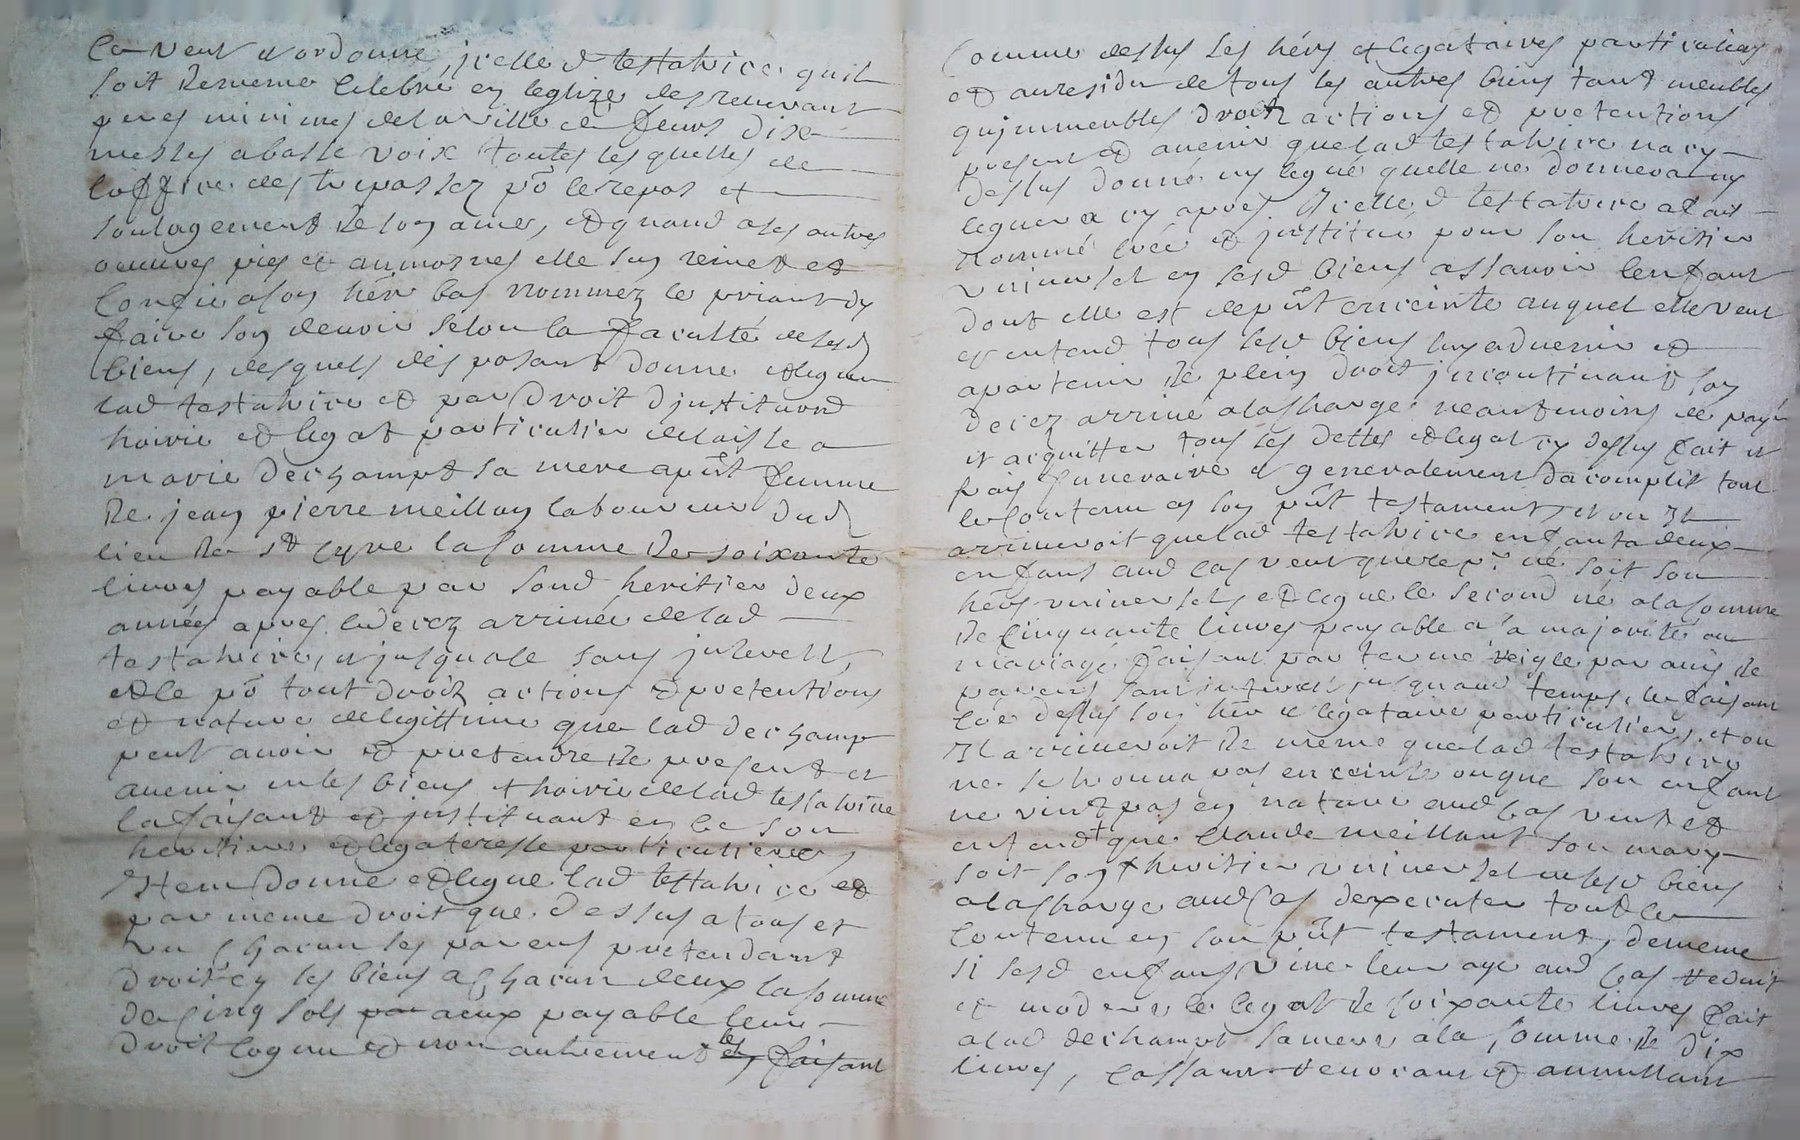 Ce veut et ordonne jcelle d testatrice quil
soit de meme celebré en leglize des reuerant
peres minimes de la ville de feurs dix
messes a basse voix toutes lesquelles de
loffice des trepassez po le repos et
soulagement de son ame, et quand a ses autres
oeuures pies et aumosnes elle sen remet et
confie a son herr bas nommez le priant dy
faire son deuoir selon la faculté de sesd
biens, desquels disposant donne et legue
lad testatrice et par droit djnstituon
hoirie et legat particulier delaisse a
marie dechampt sa mere apnt femme
de jean pierre meillan laboureur dud
lieu de st cyre la somme de soixante
liures payable par sond heritier deux
années apres le decez arriué de lad
testatrice, et jusqua ce sans jnterest,
et ce po tout droit actions et pretentions
et nature de legittime que lad dechamp
peut auoir et pretendre de present et
auenir en les biens et hoirie de lad testatrice
la faisant et jnstituant en ce son
heritiere et legateresse particuliere,
Item donne et legue lad testatrice et
par meme droit que dessus a tous et
un chacun ses parens pretendant
droit en ses biens a chacun deux la somme
de cinq sols par a eux payable leur
droit cognu et non autrement les faisant
Comme dessus ses hérs et legataires particuliers
et au residu de tous les autres biens tant meubles
qujmmeubles droits actions et pretentions
present et auenir que lad testatrice na cy
dessus donné ny legué quelle ne donnera ny
leguera cy apres Jcelle d testatrice a fait
nommé créé et jnstitué pour son heritier
uniuersel en sesd biens assauoir lenfant
dont elle est de pnt enceinte auquel elle veut
et entend tous sesd biens luy aduenir et
apartenir de plein droit jncontinant son
decez arriué a la charge neantmoins de payer
et acquitter tous les dettes et legat cy dessus fait et
frais funeraire et generalement dacomplir tout
le contenu en son pnt testament, et ou Il
arriueroit que lad testatrice enfanta deux
enfans aud cas veut que le pr né soit son
hérs uniuersels et legue le second né a la somme
de cinquante liures payable a sa majorité ou
mariage faisant par terme reigle par auis de
parens sans jnterest jusquaud temps, le faisant
co͞e dessus son hérr et legataire particulier, et ou
Il arriueroit de meme que lad testatrice
ne se trouua pas enceinte ou que son enfant
ne vint pas en nature aud cas veut et
entend que claude meillant son mary
soit son heritier uniuersel en sesd biens
a la charge aud cas dexecuter tout le
contenu en son pnt testament, de meme
si sesd enfans viue leur age aud cas reduit
et modere le legat de soixante liures fait
a lad dechampt sa mere a la somme de dix
liures, cassant reuocant et annullant